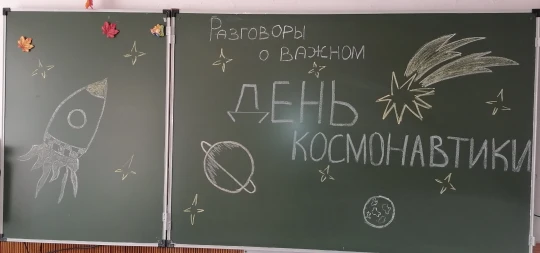 РАЗГОВОРЫ
О ВАЖНОМ
ДЕНЬ
КОСМОНАВТИКИ